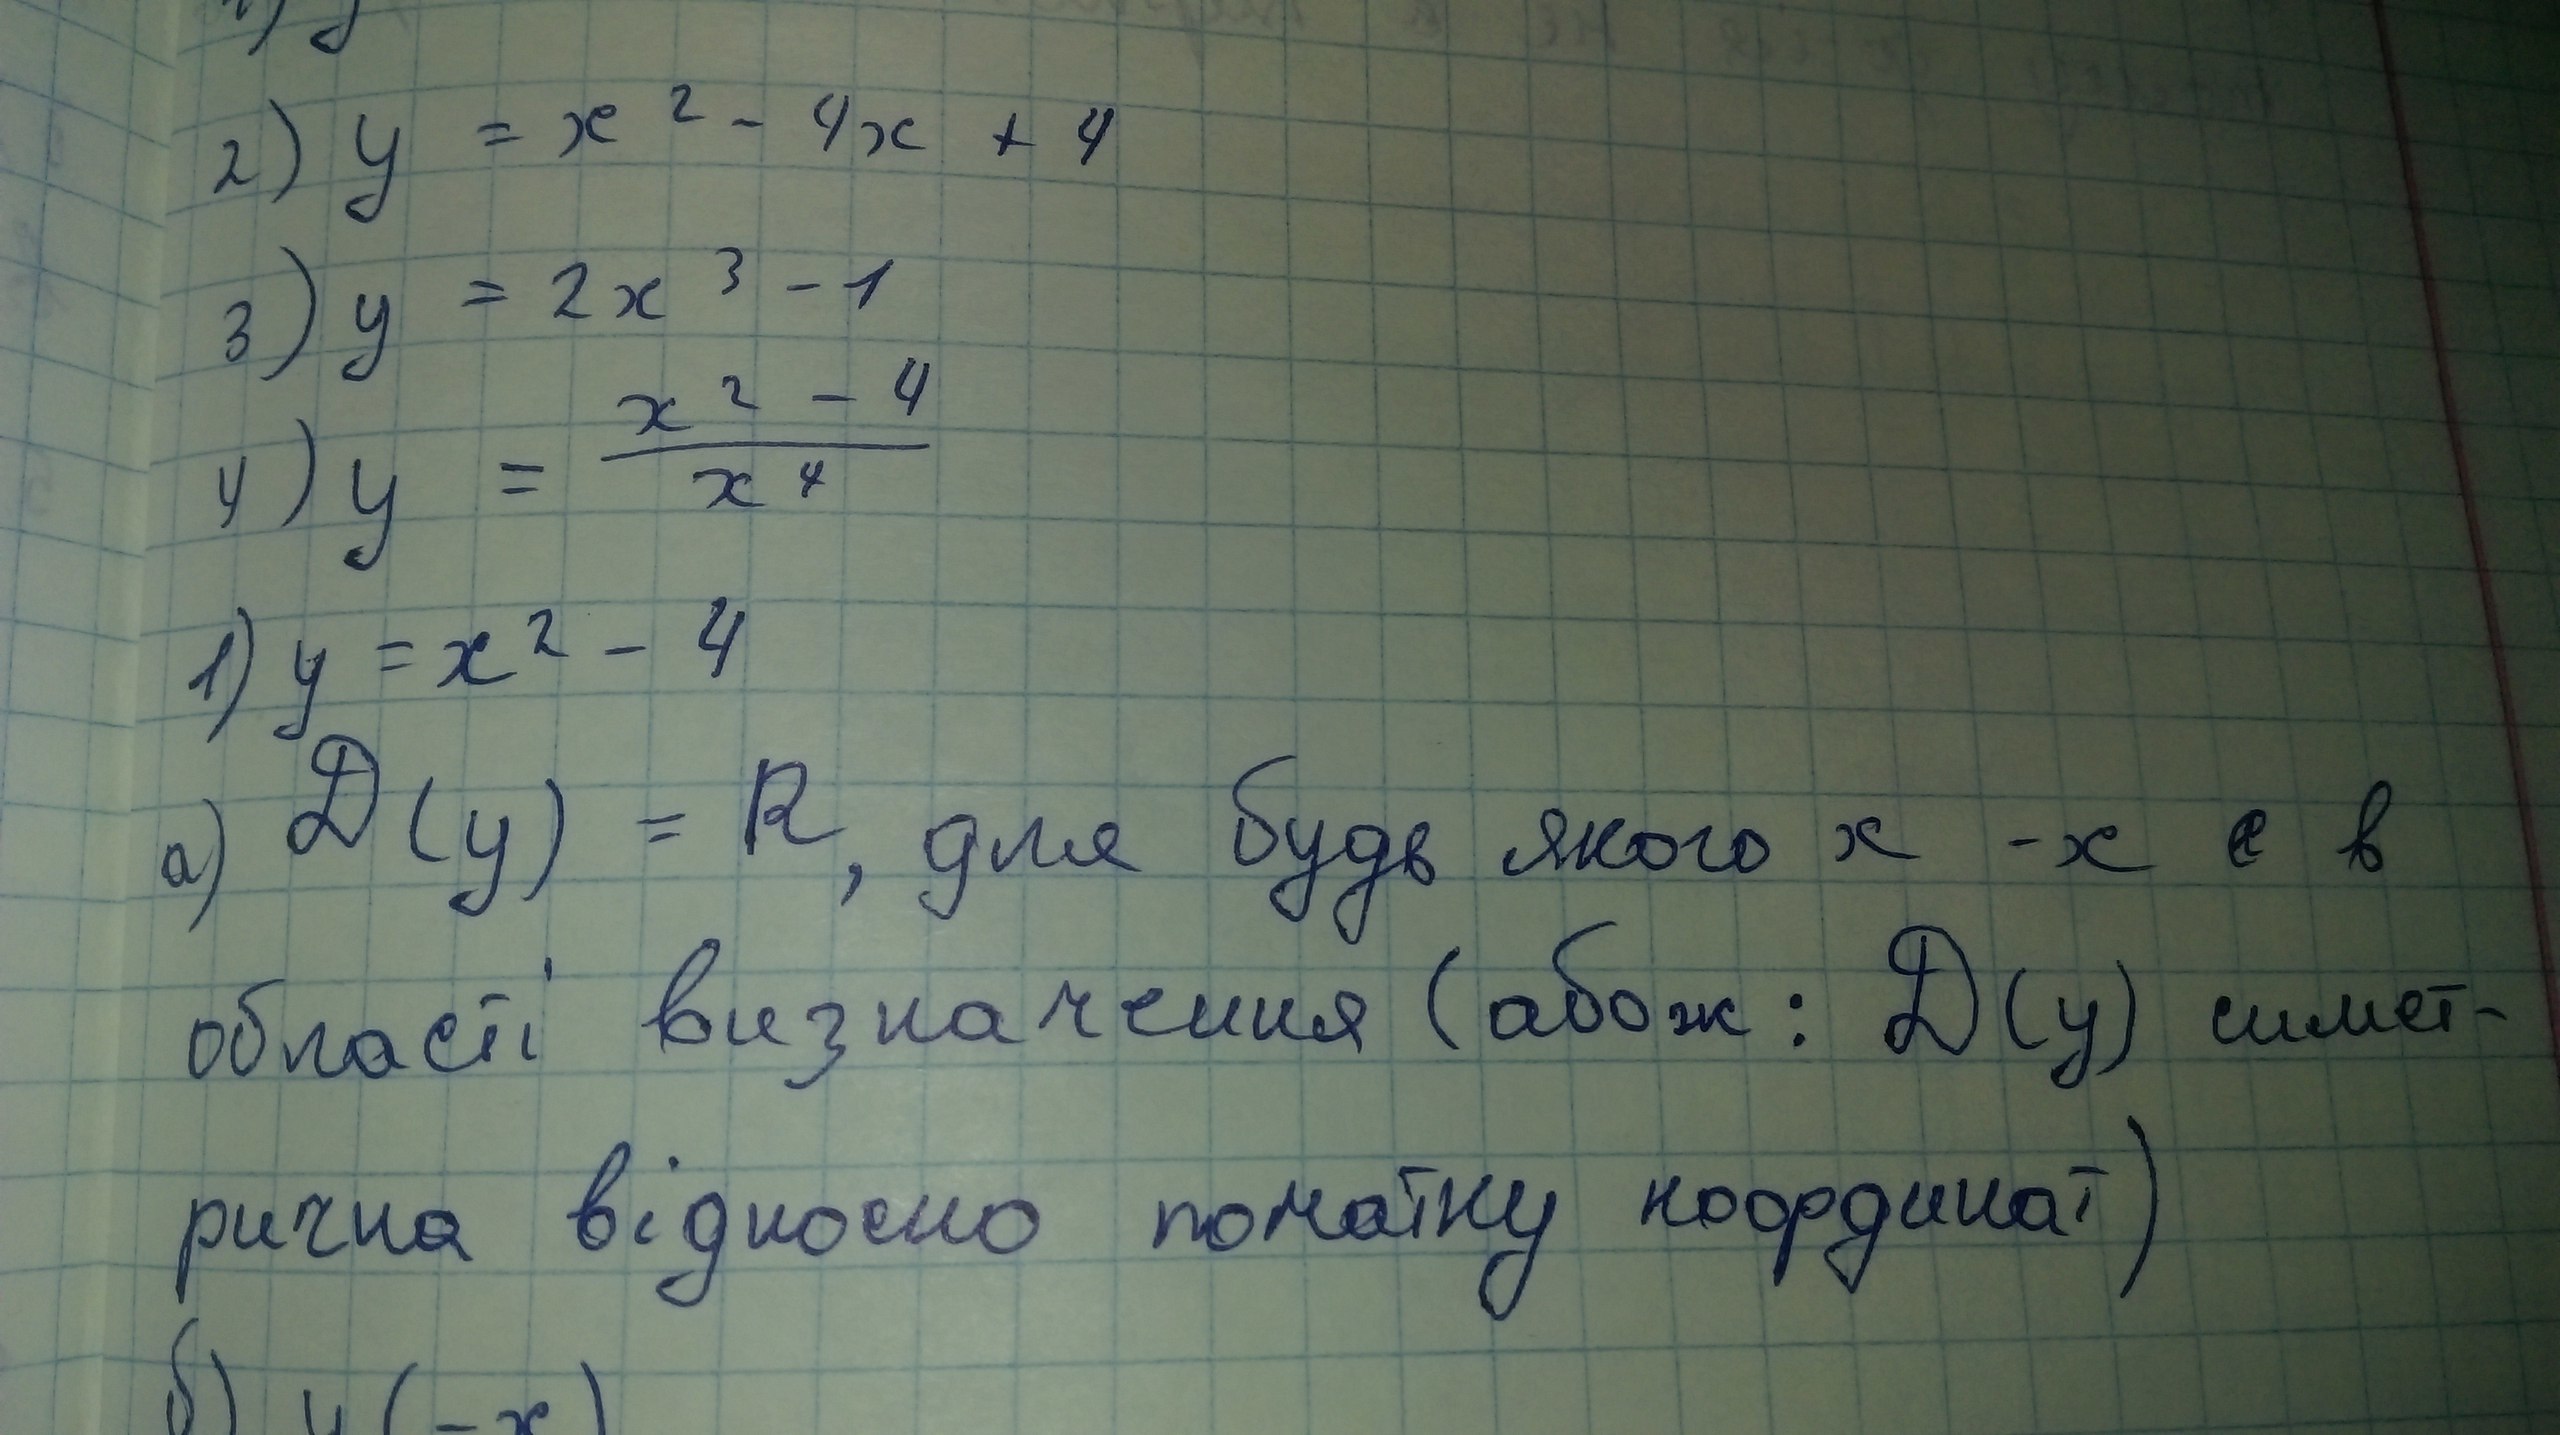 2) y = x² - 4x + 4
3) y = 2x³ - 1
4) y = \frac{x² - 4}{x⁴}
1) y = x² - 4
а) D(y) = R, для будь якого x -x є в
області визначення (абож: D(y) симет-
рична відносно початку координат)
б) y(-x)